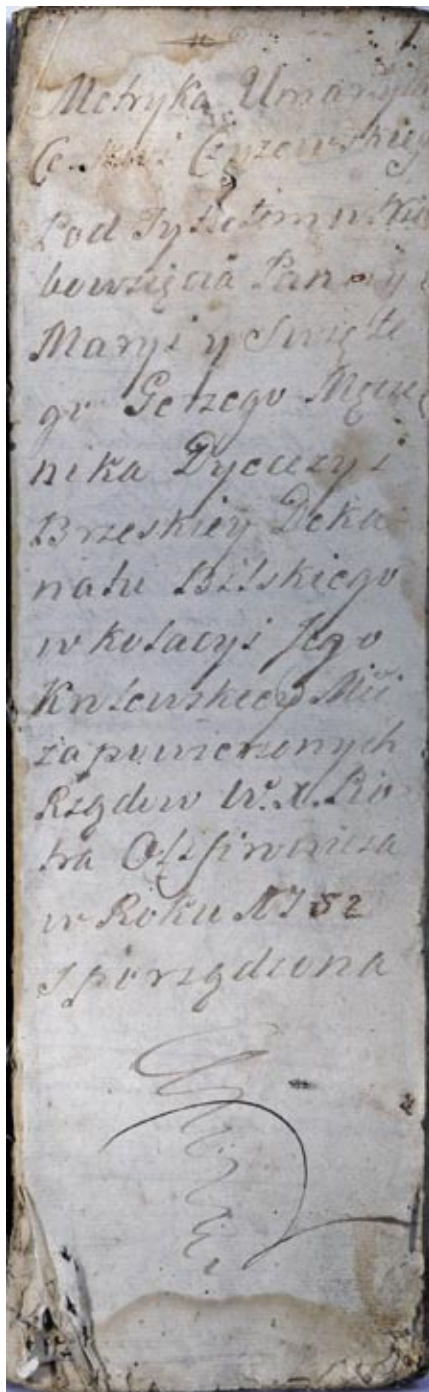 Metryka Umarłych
Czyżewskiey
Pod Tytułem w Nie
bowzięcia Panny
Maryi y Swięte
go Gerzego Męcze
nika Dycezyi
Brzeskiey Deka
natu Bilskiego
w kolacyi Jego
Krolewskiey Mści
zapomierzonych
Rządow W. X. Pio
tra
w Roku 1752
sporządzona